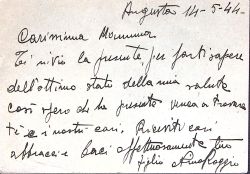 Augusta 14-5-44-
Carissima Mamma
Ti invio la presente, per farti sapere
dell'ottimo stato della mia salute
così spero che la presente venga a trovare
te e i nostri cari. Ricevi cari
abbracci e baci affettuosamente tuo
figlio